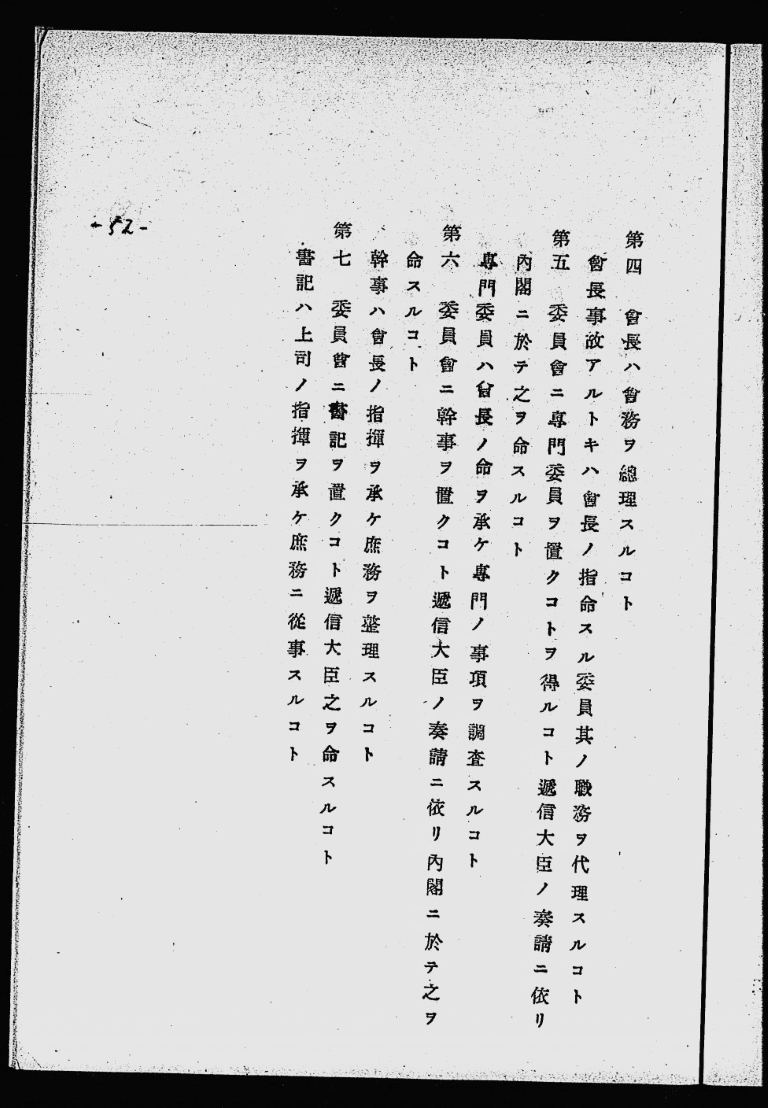 第四　會長ハ會務ヲ總理スルコト
會長事故アルトキハ會長ノ指命スル委員其ノ職務ヲ代理スルコト
第五　委員會ニ專門委員ヲ置クコトヲ得ルコト遞信大臣ノ奏請ニ依リ
內閣ニ於テ之ヲ命スルコト
專門委員ハ會長ノ命ヲ承ケ專門ノ事項ヲ調査スルコト
第六　委員會ニ幹事ヲ置クコト遞信大臣ノ奏請ニ依リ內閣ニ於テ之ヲ
命スルコト
幹事ハ會長ノ指揮ヲ承ケ庶務ヲ整理スルコト
第七　委員會ニ書記ヲ置クコト遞信大臣之ヲ命スルコト
書記ハ上司ノ指揮ヲ承ケ庶務ニ從事スルコト
-52-